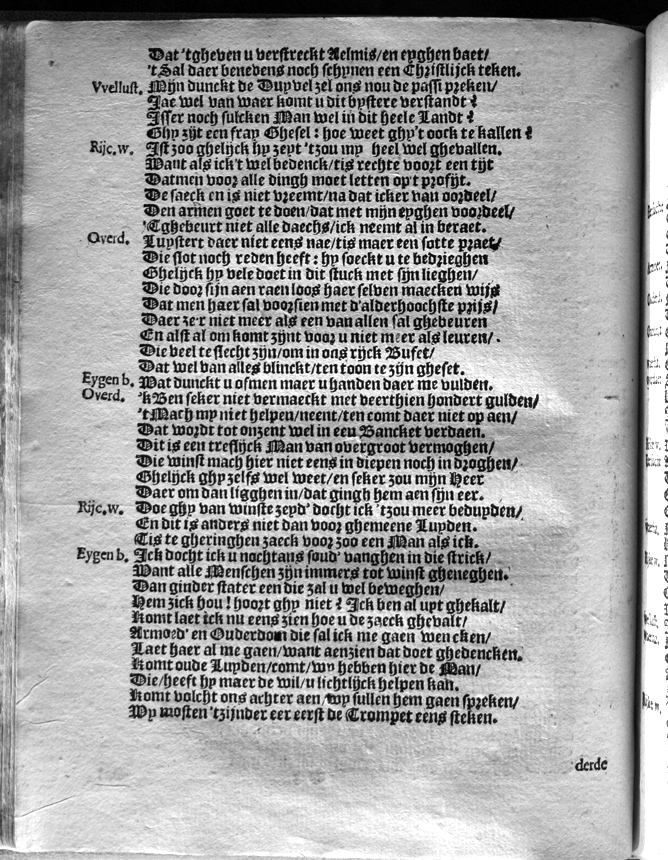 Dat 'tgheven u verstreckt Aelmis/en eyghen baet/
't Sal daer benevens noch schynen een Christlijck teken.
Vvellust. Mijn dunckt de Duyvel zel ons nou de passi preken/
Jae wel van waer komt u dit bystere verstandt?
Isser noch sulcken Man wel in dit heele Landt?
Ghy zijt een fray Ghesel: hoe weet ghy't oock te kallen?
Rijc.w. Ist zoo ghelijck hy zeyt 'tzou my heel wel ghevallen.
Want als ick't wel bedenck/tis rechte voort een tijt
Datmen voor alle dingh moet letten op't profijt.
De saeck en is niet vreemt/na dat icker van oordeel/
Den armen goet te doen/dat met mijn eyghen voordeel/
'Tghebeurt niet alle daechs/ick neemt al in beraet.
Overd. Luystert daer niet eens nae/tis maer een sotte praet/
Die slot noch reden heeft: hy soeckt u te bedrieghen
Ghelijck hy vele doet in dit stuck met sijn lieghen/
Die door sijn aen raen loos haer selven maecken wijs
Dat men haer sal voorsien met d'alderhoochste prijs/
Daer ze'r niet meer als een van allen sal ghebeuren
En alst al om komt zijnt voor u niet meer als leuren/.
Die veel te slecht zijn/om in ons rijck Bufet/
Dat wel van alles blinckt/ten toon te zijn gheset.
Eygen b. Wat dunckt u ofmen maer u handen daer me vulden.
Overd. 'k Ben seker niet vermaeckt met veerthien hondert gulden/
't Mach my niet helpen/neent/ten comt daer niet op aen/
Dat wordt tot onzent wel in een Bancket verdaen.
Dit is een treflijck Man van overgroot vermoghen/
Die winst mach hier niet eens in diepen noch in droghen/
Ghelijck ghy zelfs wel weet/en seker zou mijn Heer
Daer om dan ligghen in/dat gingh hem aen sijn eer.
Rijc.w. Doe ghy van winste zeyd' docht ick 'tzou meer beduyden/
En dit is anders niet dan voor ghemeene Luyden.
Tis te gheringhen zaeck voor zoo een Man als ick.
Eygen b. Ick docht ick u nochtans soud' vanghen in die strick/
Want alle Menschen zijn immers tot winst gheneghen.
Dan ginder stater een die zal u wel beweghen/
Hem zick hou! hoort ghy niet? Ick ben al uyt ghekalt/
Komt laet ick nu eens zien hoe u de zaeck ghevalt/
Armoed' en Ouderdom die sal ick me gaen wencken/
Laet haer al me gaen/want aenzien dat doet ghedencken.
Komt oude Luyden/comt/wy hebben hier de Man/
Die/heeft hy maer de wil/u lichtlijck helpen kan.
Komt volcht ons achter aen/wy sullen hem gaen spreken/
Wy mosten 'tzijnder eer eerst de Trompet eens steken.
derde